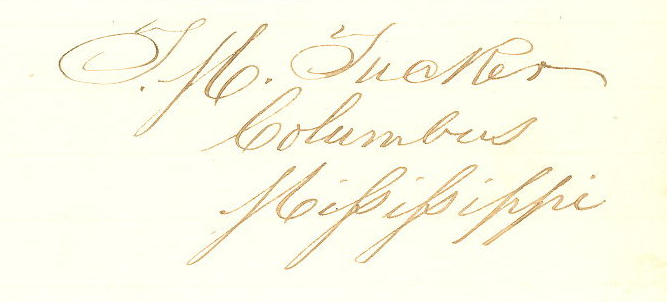 T. M. Tucker
Columbus
Miſsiſsippi